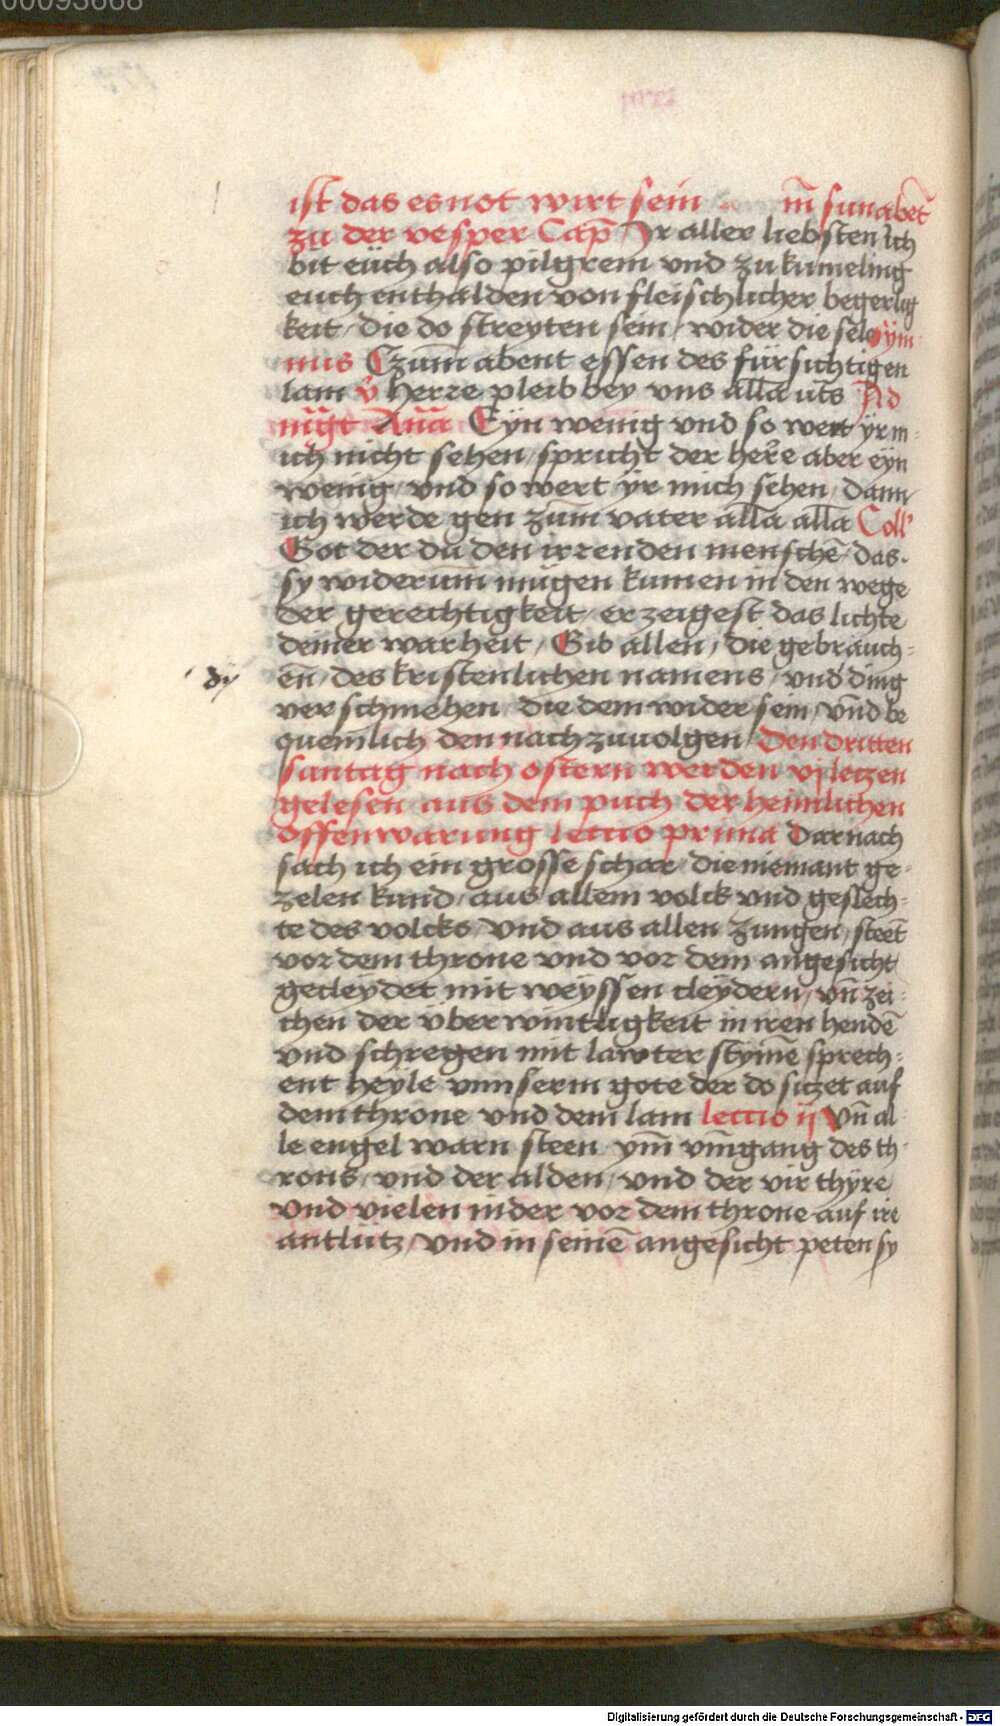 00093668
ist das es not wirt sein m̄ sunabet̄
zu der vesper Cap̄ Ir aller liebsten ich
bit euch also pilgrem vnd zukumeling
euch enthalden von fleischlicher begerlig
keit / die do streyten sein / wider die sele ym
nus Czum̄ abent essen des fürsichtigen
lam v̊ Herre pleib bey vns alla̅ uts Ad
m̄gt Ana̅ Eyn wenig vnd so wert yr m
ich nicht sehen / spricht der here aber eyn
wenig / vnd so wert yr mich sehen / dann
ich werde gen zum vater alla̅ alla̅ Coll'
Got der du den irrenden mensche̅ / das
sy widerum̄ mügen kumen in den wege
der gerechtigkeit / erzeigest das lichte
deiner warheit / Gib allen / die gebrauch⸗
en̄ / des kristenlichen namens / vnd ding
dy
verschmehen / die dem wider sein / vn̄d be
quemlich den nachzuuolgen Den dritten
suntag nach ostern werden vj leczen
gelesen aus dem puch der heimlichen
offenwarung lectio prima Darnach
sach ich ein grosse schar / die niemant ge⸗
zelen kund / aus allem volck vnd geslech⸗
te des volcks / vnd aus allen zungen / steet̄
vor dem throne vnd vor dem angesicht
gecleydet mit weyssen cleydern / vn̄ zei⸗
chen der vberwintligkeit in iren hende̅
vnd schregen mit lawter styme̅ sprech⸗
ent heyle vnnserm gote der do siczet auf
dem throne vnd dem lam lectio ij Vn̄ al
le engel warn steen ym̄ vm̄gang des th⸗
rons / vnd der alden / vnd der vir thyre
vnd vielen nider vor dem throne auf ire
antlütz / vnd in seine̅ angesicht peten sy
Digitalisierung gefördert durch die Deutsche Forschungsgemeinschaft - DFG